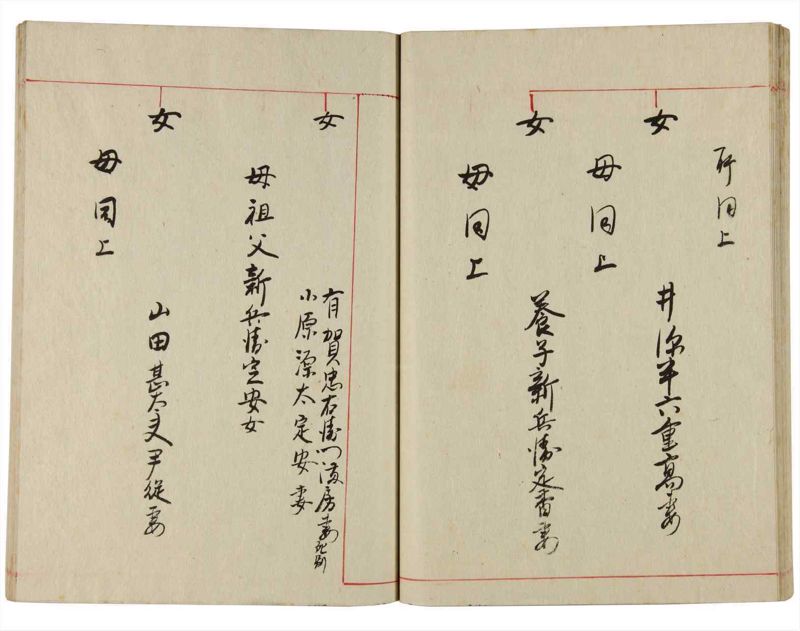 所同上
女
母同上
井深半六重高妻
女
母同上
養子新兵衛定番妻
女
有賀忠右衛門満房妻死別
小原源太定安妻
母祖父新兵衛定安女
女
山田甚太夫尹従妻
母同上